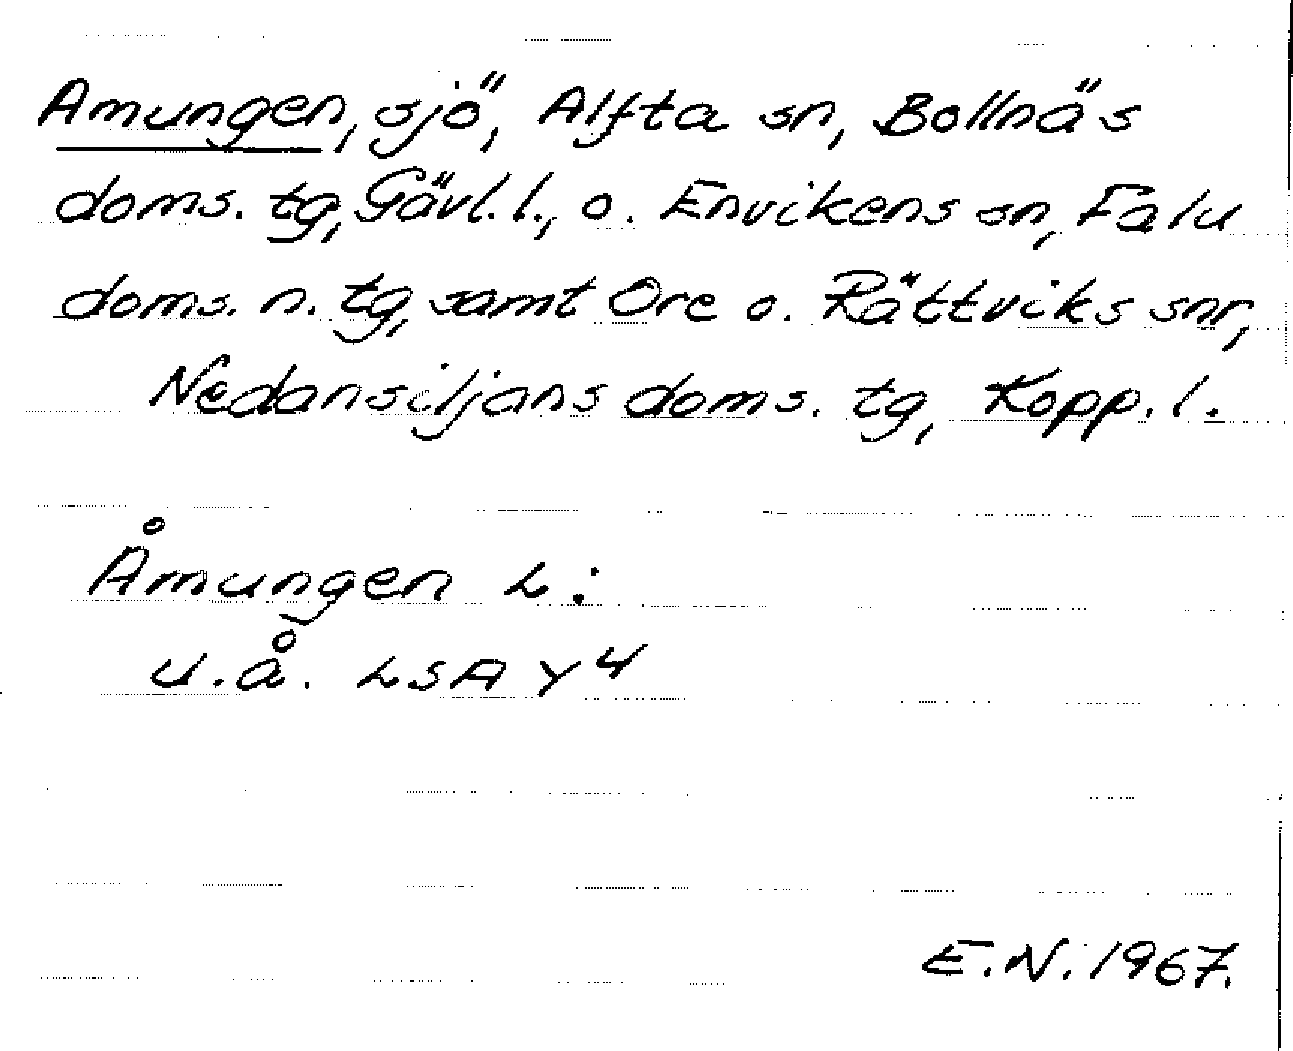 Amungen, sjö, Alfta sn, Bollnäs
doms. tg, Gävl. l., o. Envikens sn, Falu
doms. n. tg, samt Ore o. Rättviks snr,
Nedansiljans doms. tg, Kopp. l.
Åmungen L:
u.å. LSA Y 4
E.N. 1967.